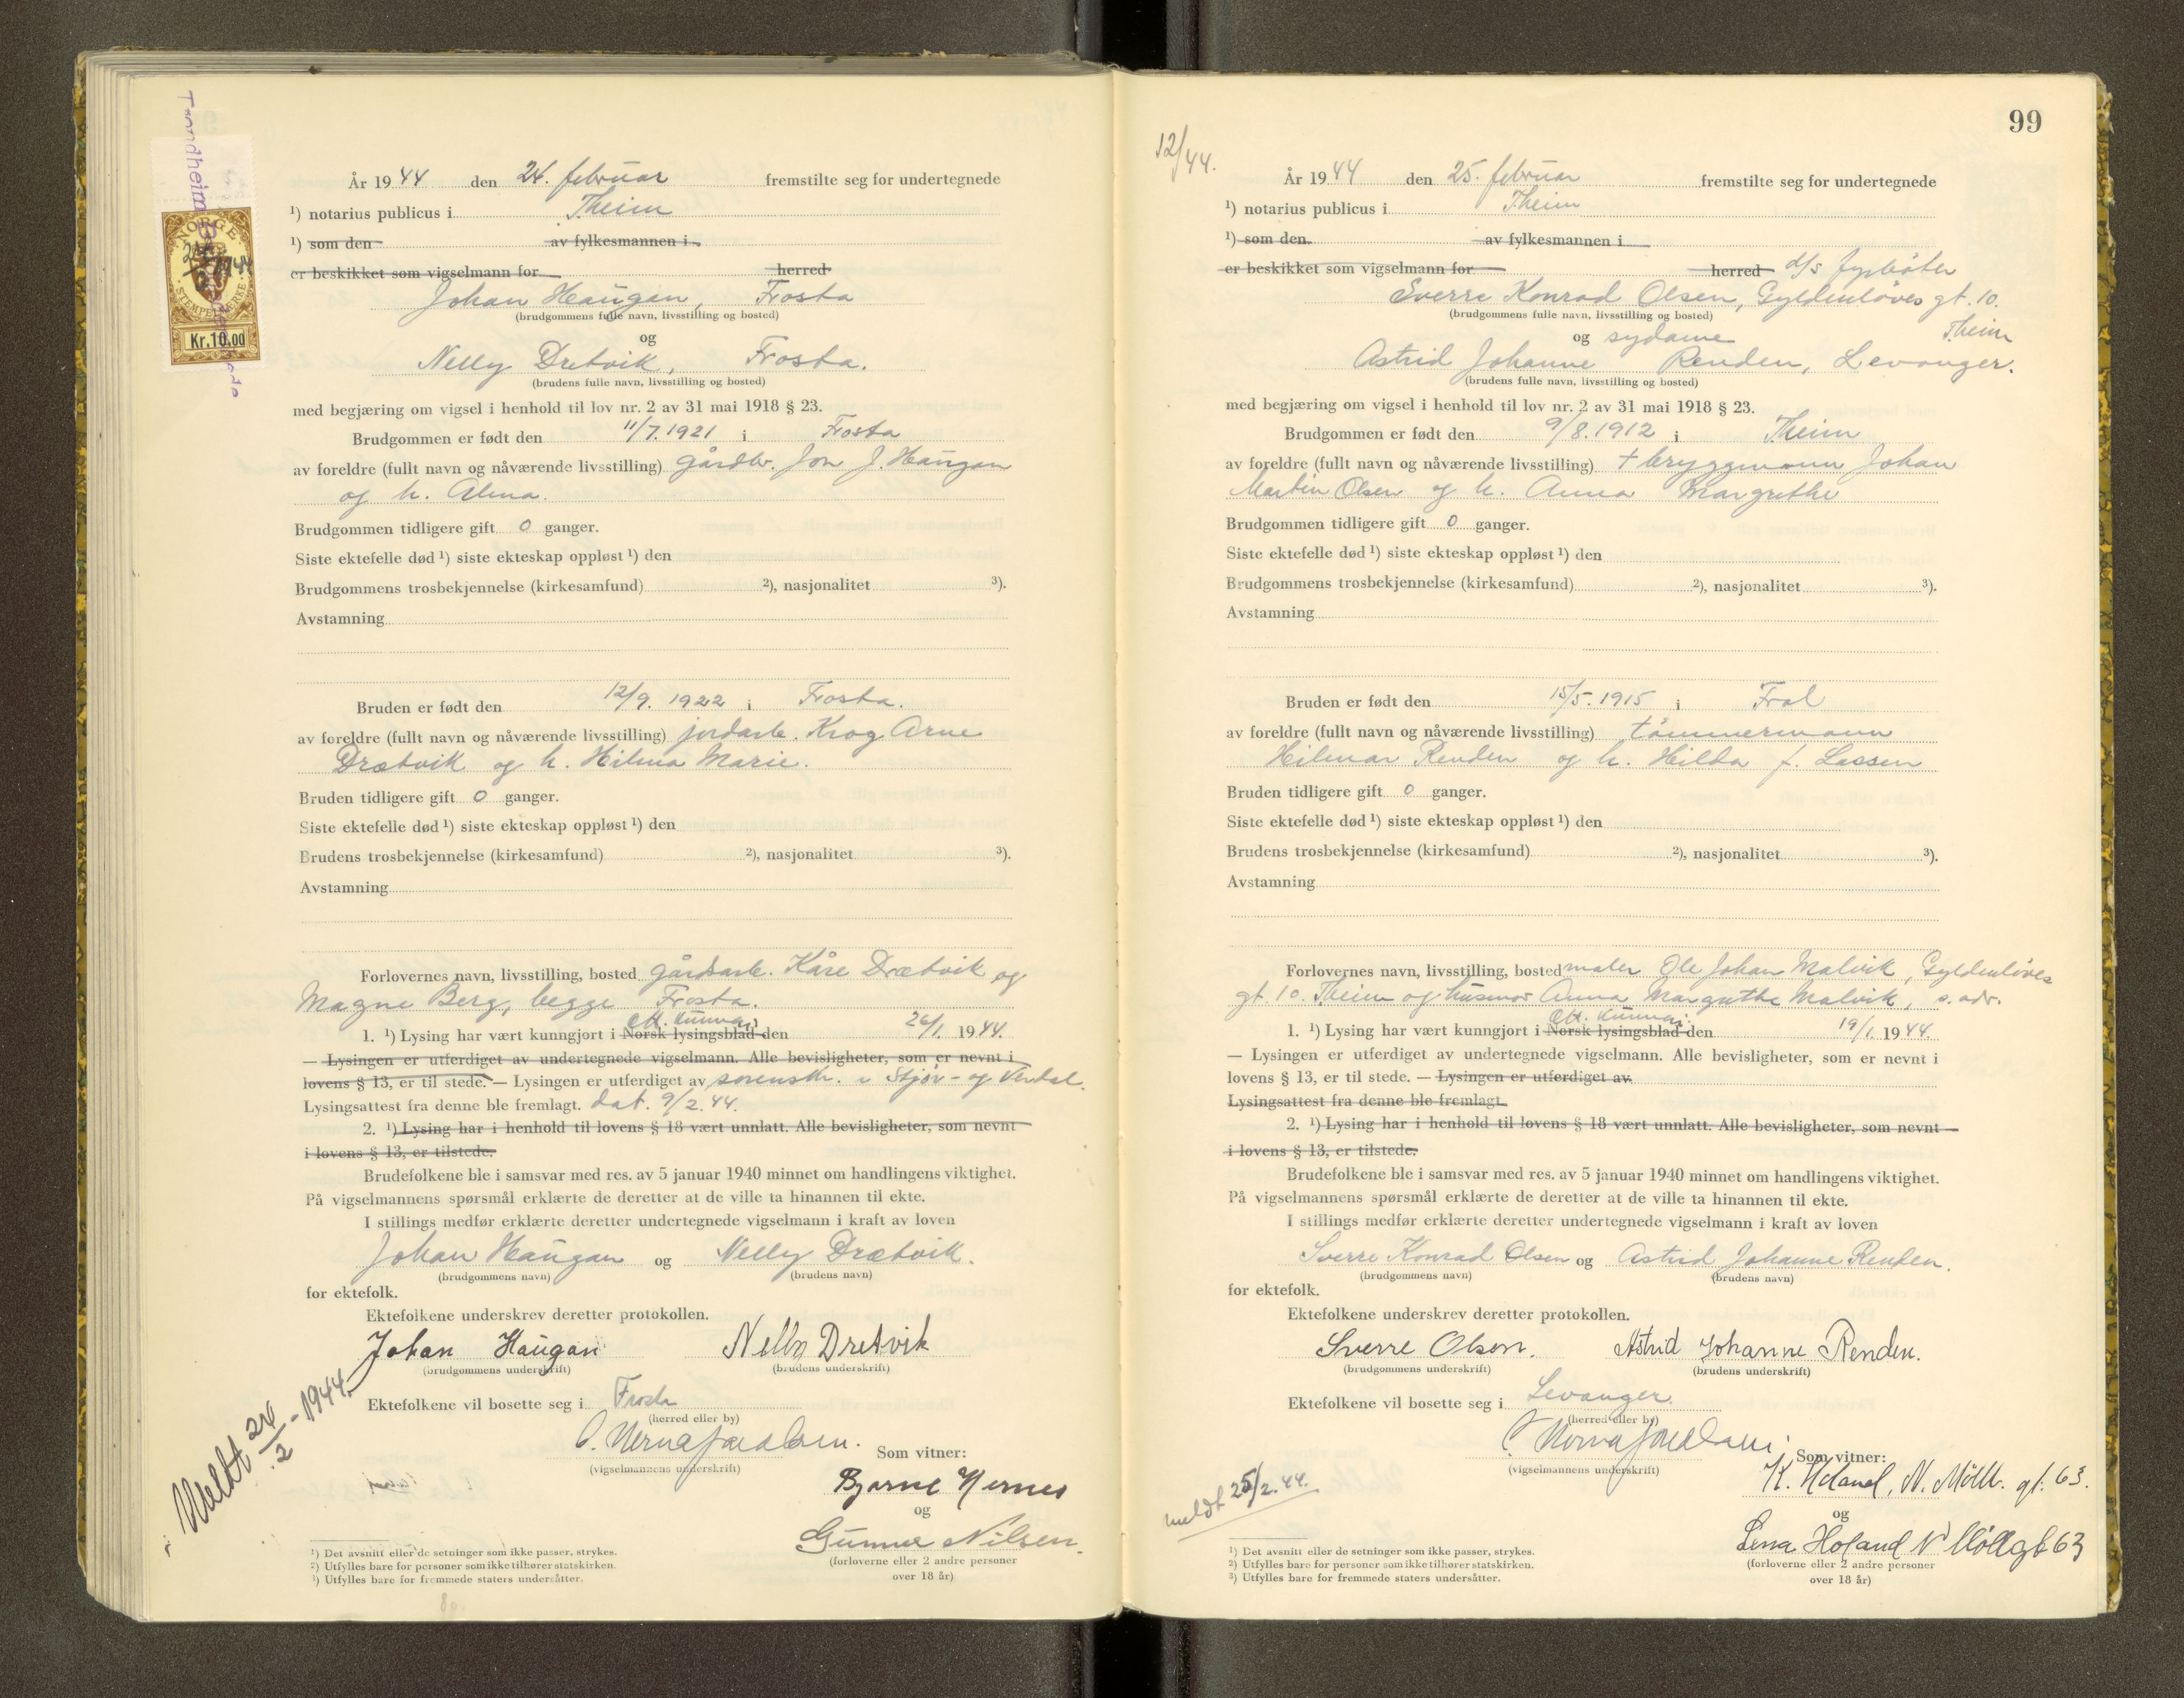 Trondheim
NORGE
24/2 1944
STEMPELMERKE
Kr.10.00
År 1944 den 24. februar fremstilte seg for undertegnede
¹) notarius publicus i Theim
¹) som den av fylkesmannen i
er beskikket som vigselmann for herred
Johan Haugan, Frosta
(brudgommens fulle navn, livsstilling og bosted)
og
Nelly Dretvik, Frosta.
(brudens fulle navn, livsstilling og bosted)
med begjæring om vigsel i henhold til lov nr. 2 av 31 mai 1918 § 23.
Brudgommen er født den 11/7. 1921 i Frosta
av foreldre (fullt navn og nåværende livsstilling) gårdbr. Jon J. Haugan
og h. Alma.
Brudgommen tidligere gift 0 ganger.
Siste ektefelle død ¹) siste ekteskap oppløst ¹) den
Brudgommens trosbekjennelse (kirkesamfund) ²), nasjonalitet ³).
Avstamning
Bruden er født den 12/9. 1922 i Frosta.
av foreldre (fullt navn og nåværende livsstilling) jordarb. Krog Arne
Drætvik og h. Hilma Marie.
Bruden tidligere gift 0 ganger.
Siste ektefelle død ¹) siste ekteskap oppløst ¹) den
Brudens trosbekjennelse (kirkesamfund) ²), nasjonalitet ³).
Avstamning
Forlovernes navn, livsstilling, bosted gårdsarb. Kåre Drætvik og
Magne Berg, begge Frosta.
off. kunngj.
1. ¹) Lysing har vært kunngjort i Norsk lysingsblad den 26/1. 1944.
— Lysingen er utferdiget av undertegnede vigselmann. Alle bevisligheter, som er nevnt i
lovens § 13, er til stede. — Lysingen er utferdiget av sorenskr. i Stjør- og Verdal.
Lysingsattest fra denne ble fremlagt. dat. 9/2. 44.
2. ¹) Lysing har i henhold til lovens § 18 vært unnlatt. Alle bevisligheter, som nevnt
i lovens § 13, er tilstede.
Brudefolkene ble i samsvar med res. av 5 januar 1940 minnet om handlingens viktighet.
På vigselmannens spørsmål erklærte de deretter at de ville ta hinannen til ekte.
I stillings medfør erklærte deretter undertegnede vigselmann i kraft av loven
Johan Haugan og Nelly Drætvik.
(brudgommens navn) (brudens navn)
for ektefolk.
Ektefolkene underskrev deretter protokollen.
Johan Haugan Nelly Dretvik
(brudgommens underskrift) (brudens underskrift)
Ektefolkene vil bosette seg i Frosta
(herred eller by)
Som vitner:
(vigselmannens underskrift)
Meldt 24/2 - 1944.
Bjarne Nernes
og
Gunnar Nilsen.
(forloverne eller 2 andre personer
over 18 år)
¹) Det avsnitt eller de setninger som ikke passer, strykes.
²) Utfylles bare for personer som ikke tilhører statskirken.
³) Utfylles bare for fremmede staters undersåtter.
99
12/44.
År 1944 den 25. februar fremstilte seg for undertegnede
¹) notarius publicus i Theim
¹) som den av fylkesmannen i
er beskikket som vigselmann for herred d/s fyrbøter
Sverre Konrad Olsen, Gyldenløves gt. 10.
(brudgommens fulle navn, livsstilling og bosted)
og sydame Theim
Astrid Johanne Renden, Levanger.
(brudens fulle navn, livsstilling og bosted)
med begjæring om vigsel i henhold til lov nr. 2 av 31 mai 1918 § 23.
Brudgommen er født den 9/8. 1912 i Theim
av foreldre (fullt navn og nåværende livsstilling) + bryggmann Johan
Martin Olsen og h. Anna Margrethe
Brudgommen tidligere gift 0 ganger.
Siste ektefelle død ¹) siste ekteskap oppløst ¹) den
Brudgommens trosbekjennelse (kirkesamfund) ²), nasjonalitet ³).
Avstamning
Bruden er født den 15/5. 1915 i Frol
av foreldre (fullt navn og nåværende livsstilling) tømmermann
Hilmar Renden og h. Hilda f. Lassen
Bruden tidligere gift 0 ganger.
Siste ektefelle død ¹) siste ekteskap oppløst ¹) den
Brudens trosbekjennelse (kirkesamfund) ²), nasjonalitet ³).
Avstamning
Forlovernes navn, livsstilling, bosted maler Ole Johan Malvik, Gyldenløves
gt. 10. Theim og husmor Anna Margrethe Malvik, s. adr.
off. kunngj.
1. ¹) Lysing har vært kunngjort i Norsk lysingsblad den 19/1. 1944.
— Lysingen er utferdiget av undertegnede vigselmann. Alle bevisligheter, som er nevnt i
lovens § 13, er til stede. — Lysingen er utferdiget av
Lysingsattest fra denne ble fremlagt.
2. ¹) Lysing har i henhold til lovens § 18 vært unnlatt. Alle bevisligheter, som nevnt
i lovens § 13, er tilstede.
Brudefolkene ble i samsvar med res. av 5 januar 1940 minnet om handlingens viktighet.
På vigselmannens spørsmål erklærte de deretter at de ville ta hinannen til ekte.
I stillings medfør erklærte deretter undertegnede vigselmann i kraft av loven
Sverre Konrad Olsen og Astrid Johanne Renden.
(brudgommens navn) (brudens navn)
for ektefolk.
Ektefolkene underskrev deretter protokollen.
Sverre Olsen. Astrid Johanne Renden.
(brudgommens underskrift) (brudens underskrift)
Ektefolkene vil bosette seg i Levanger.
(herred eller by)
Som vitner:
(vigselmannens underskrift)
K. Holand, N. Møll. gt. 63.
meldt 25/2. 44.
og
Lina Holand N Møllegt 63
(forloverne eller 2 andre personer
over 18 år)
¹) Det avsnitt eller de setninger som ikke passer, strykes.
²) Utfylles bare for personer som ikke tilhører statskirken.
³) Utfylles bare for fremmede staters undersåtter.